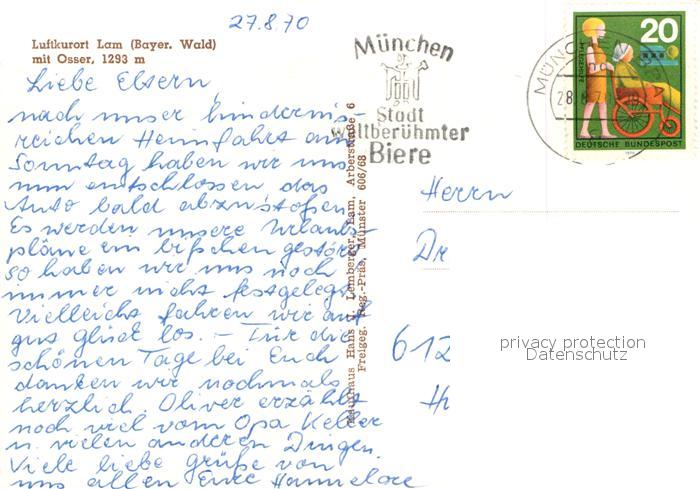 27.8.70
Luftkurort Lam (Bayer. Wald)
mit Osser, 1293 m
Liebe Eltern,
nach unser hindernis-
reichen Heimfahrt am
Sonntag haben wir uns
nun entschlossen das
Auto bald abzustoßen.
Es werden unsere Urlaubs-
pläne ein bißchen gestört
so haben wir uns noch
immer nicht festgelegt.
Vielleicht fahren wir auf
gut Glück los. – Für die
schönen Tage bei Euch
danken wir nochmals
herzlich. Oliver erzählt
noch viel vom Opa Keller
u. vielen anderen Dingen.
Viele liebe grüße von
uns allen Eure Hannelore
Hans J. Lemberger, Lam, Arberstraße 6
Freigeg. Reg.-Präs. Münster 606/68
München
Stadt
weltberühmter
Biere
MÜNC
28.8.
20
PFLEGEHILFE
DEUTSCHE BUNDESPOST
Herrn
Dr
612
privacy protection
Datenschutz